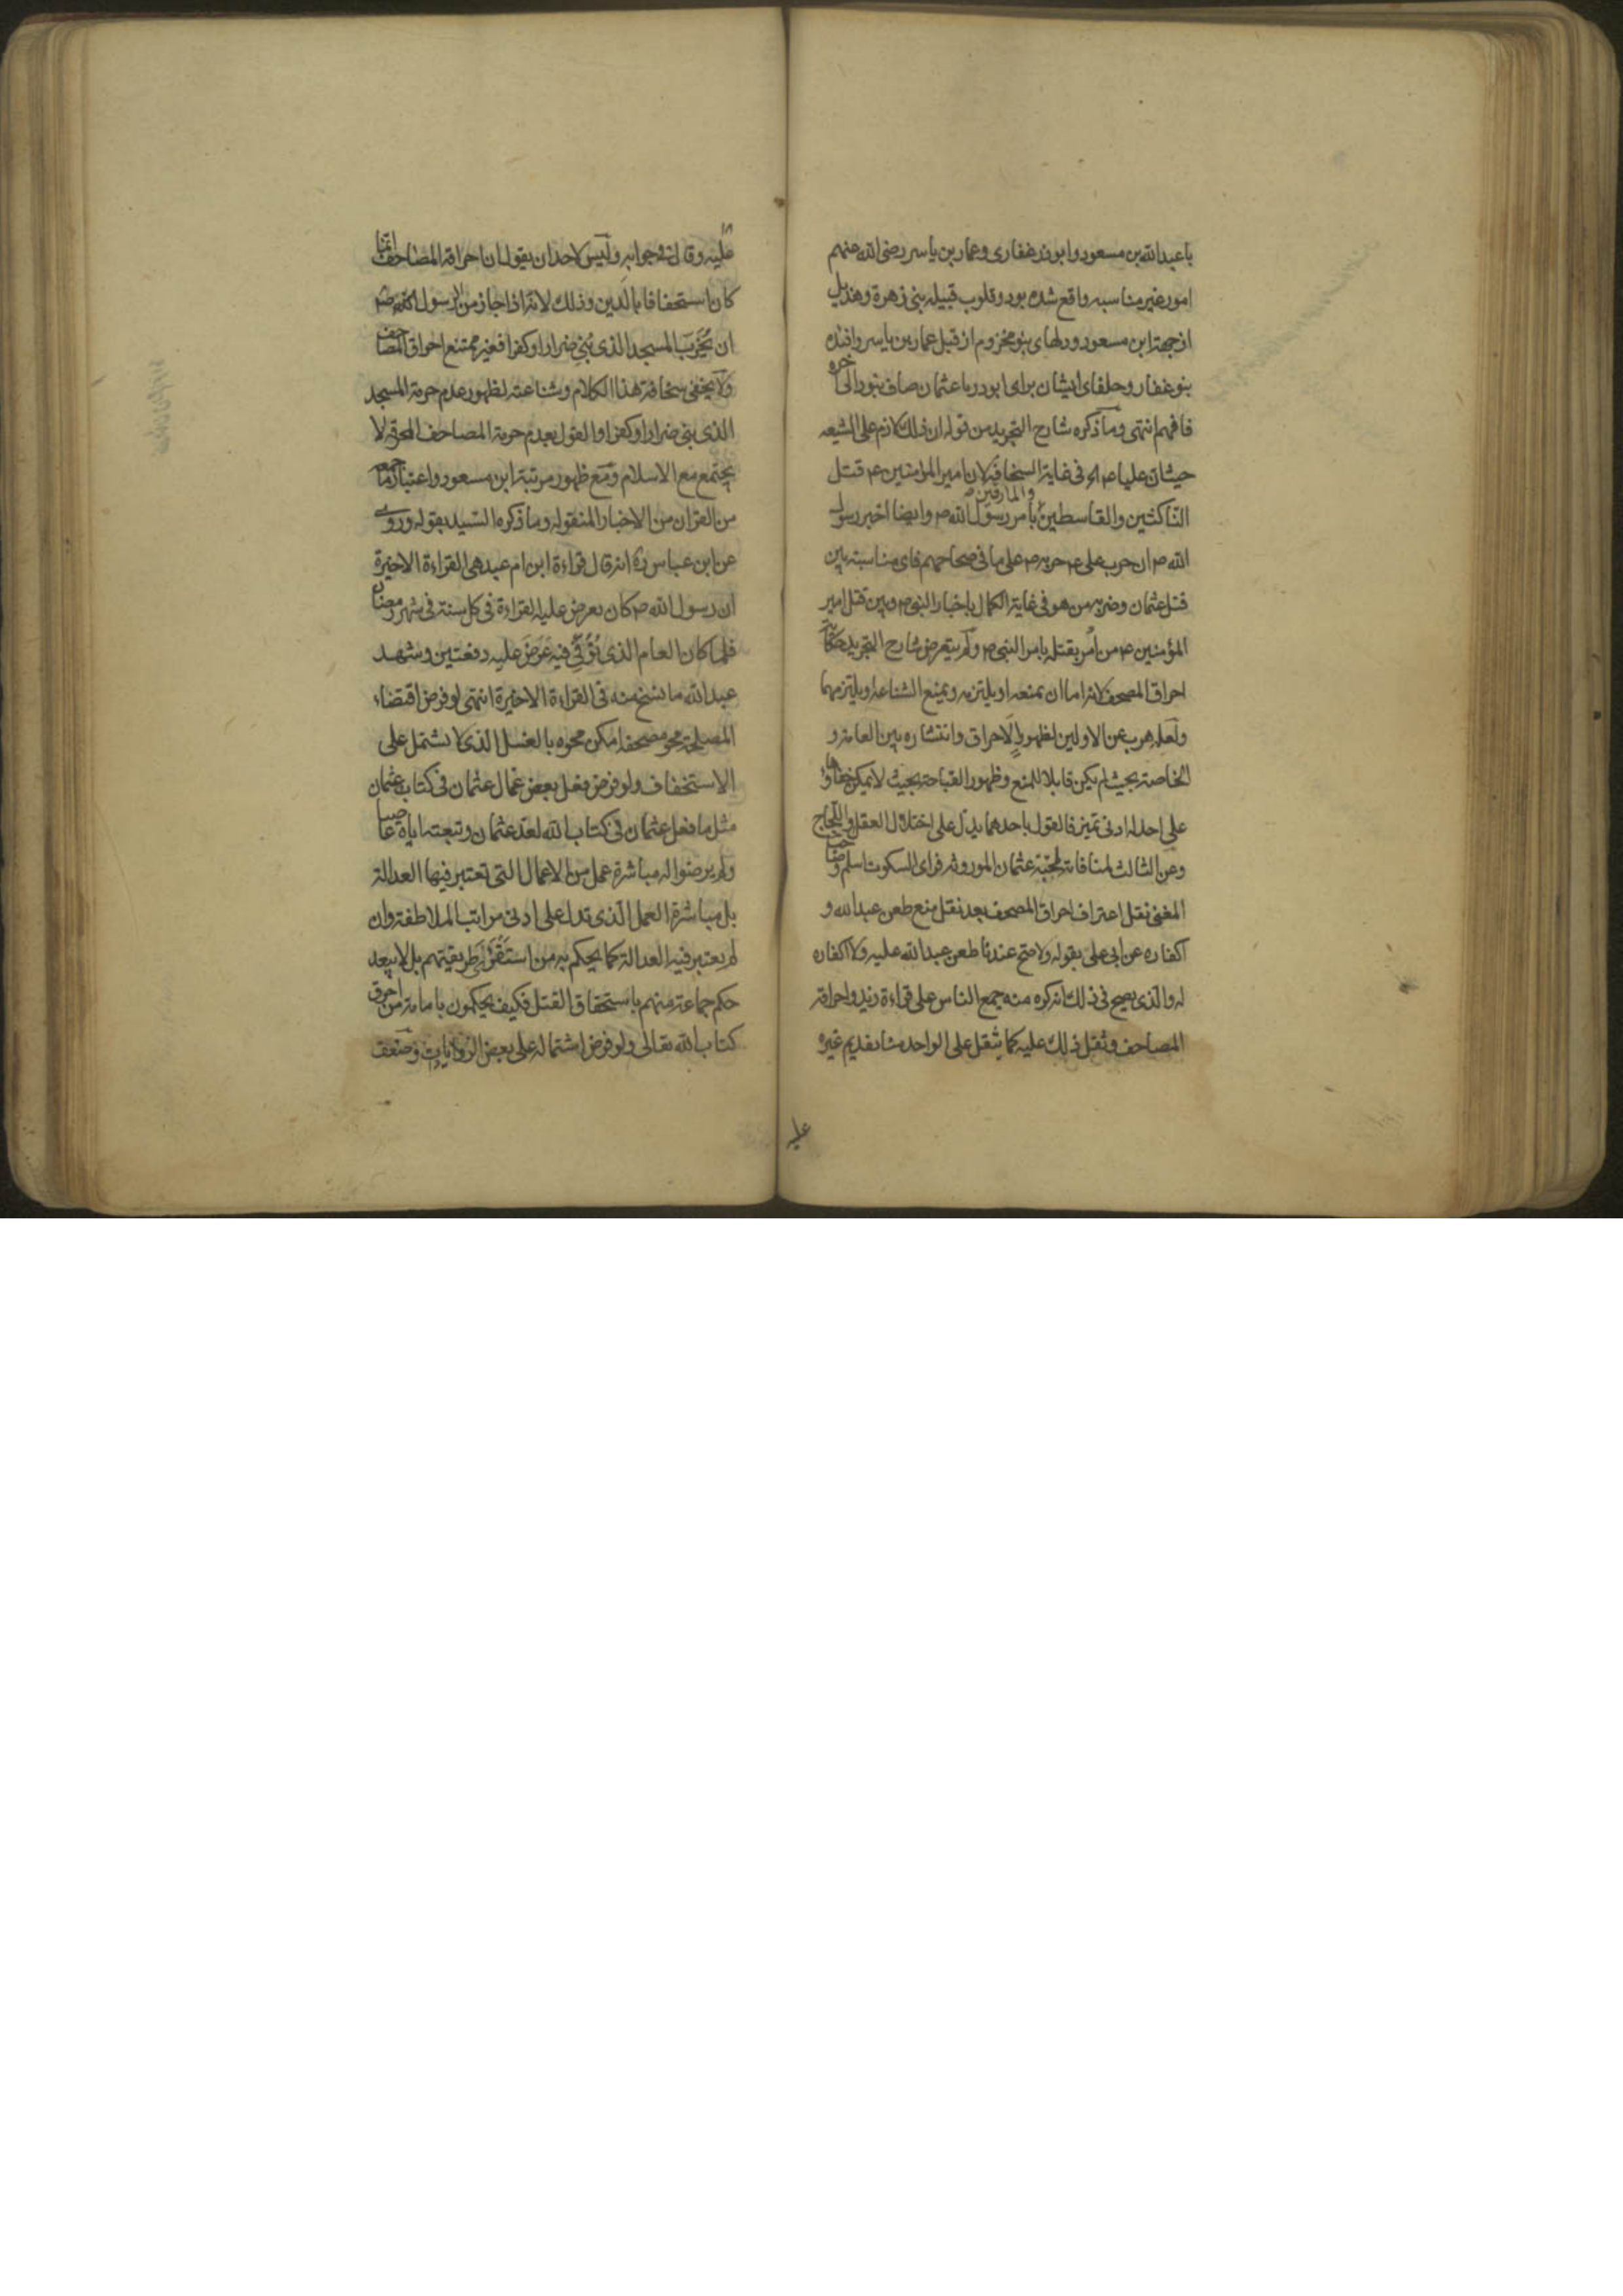 با عبدالله بن مسعود و ابوذر غفاری و عمار بن یاسر رضی الله عنهم
امور غیر مناسبه واقع شده بود و قلوب قبیله بنی زهرة و هذیل
از جهة ابن مسعود و دلهای بنو مخزوم از قبل عمار بن یاسر و افئده
بنو غفار و حلفای ایشان برای ابوذر با عثمان صاف نبود الی آخره
فافهم انتهی وما ذکره شارح التجرید من قوله ان ذلک لازم علی الشیعه
حیث ان علیا ع م فی غایة السخافة لان امیر المؤمنین ع م قتل
الناکثین والقاسطین والمارقین بامر رسول الله ص وایضا اخبر رسول
الله ص ان حرب علی ع م حربه ص علی ما فی صحاحهم فای مناسبة بین
قتل عثمان وضربه من هو فی غایة الکمال باخبار النبی ص وبین قتل امیر
المؤمنین ع م من امر بقتله بامر النبی ص ولم یتعرض شارح التجرید حکایة
احراق المصحف لانه اما ان یمنعه او یلتزمه ویمنع الشناعة او یلتزمها
ولعله هرب عن الاولین لظهور الاحراق وانتشاره بین العامة و
الخاصة بحیث لم یکن قابلا للمنع وظهور القباحة بحیث لا یمکن خفاؤها
علی احد له ادنی تمیز فالقول باحدهما یدل علی اختلال العقل واللجاج
وعن الثالث لمنافاته لمحبة عثمان الموروثه فرای السکوت اسلم وصاحب
المغنی نقل اعتراف احراق المصحف بعد نقل منع طعن عبدالله و
اکفاره عن ابی علی بقوله ولا صح عندنا طعن عبدالله علیه ولا اکفاره
له والذی یصح فی ذلک انه کره منه جمع الناس علی قراءة زید واحراقه
المصاحف وثقل ذلک علیه کما یثقل علی الواحد منا تقدیم غیره
علیه
علیه وقال فی جوابه ولیس لاحد ان یقول ان احراقه المصاحف انما
کان استخفافا بالدین وذلک لانه اذا جاز من الرسول الله ص
ان یخرب المسجد الذی بنی ضرارا وکفرا فغیر ممتنع احراق المصاحف
ولا یخفی سخافة هذا الکلام وشناعته لظهور عدم حرمة المسجد
الذی بنی ضرارا وکفرا والقول بعدم حرمة المصاحف المحرقة لا
یجتمع مع الاسلام ومع ظهور مرتبة ابن مسعود واعتبار ما جمعه
من القرآن من الاخبار المنقوله وما ذکره السید بقوله وروی
عن ابن عباس ره انه قال قراءة ابن ام عبد هی القراءة الاخیرة
ان رسول الله ص کان یعرض علیه القراءة فی کل سنة فی شهر رمضان
فلما کان العام الذی توفی فیه عرض علیه دفعتین وشهد
عبدالله ما نسخ منه فی القراءة الاخیرة انتهی لو فرض اقتضاء
المصلحة محو مصحف امکن محوه بالغسل الذی لا یشتمل علی
الاستخفاف ولو فرض فعل بعض عمال عثمان فی کتاب عثمان
مثل ما فعل عثمان فی کتاب الله لعد عثمان وتبعته ایاه عاصیا
ولم یرضوا له مباشرة عمل من الاعمال التی تعتبر فیها العدالة
بل مباشرة العمل الذی تدل علی ادنی مراتب الملاطفة وان
لم یعتبر فیه العدالة کما یحکم به من استقرأ طریقتهم بل لا یبعد
حکم جماعة منهم باستحقاق القتل فکیف یحکمون بامامة من احرق
کتاب الله تعالی ولو فرض اشتماله علی بعض الروایات وضعف